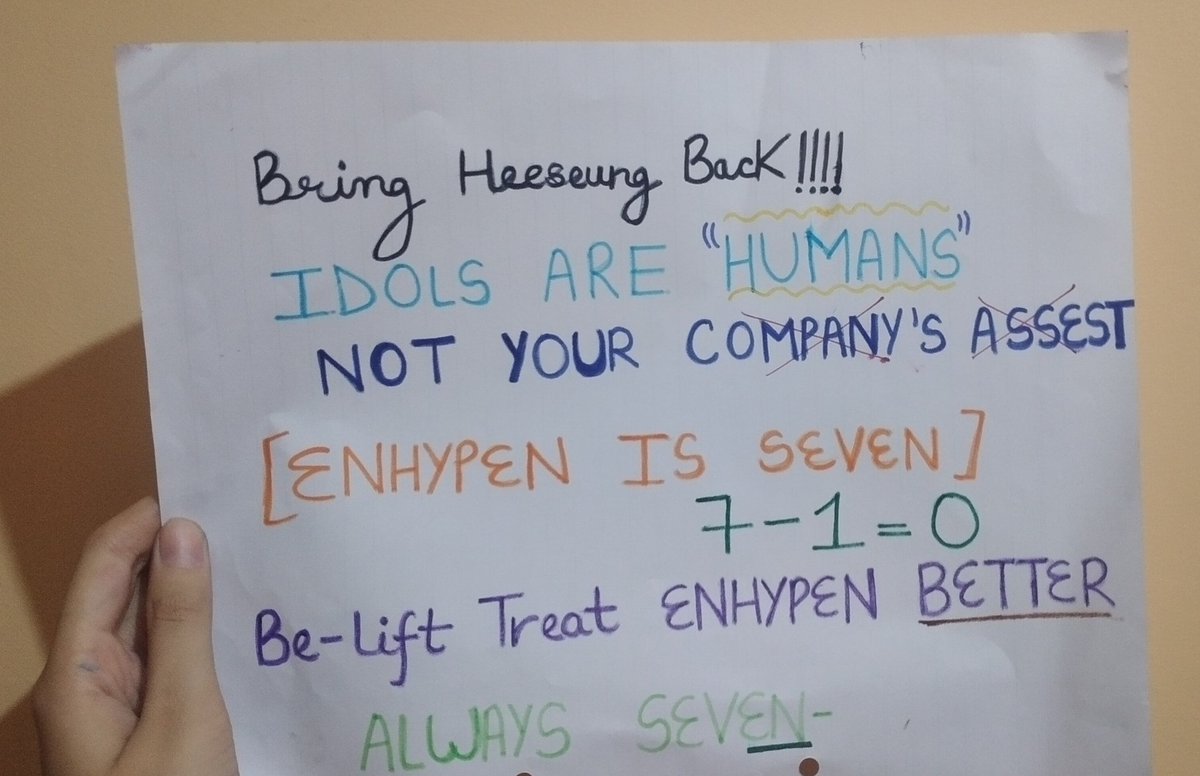 Bring Heeseung Back!!!!
IDOLS ARE "HUMANS"
NOT YOUR COMPANY'S ASSEST
[ENHYPEN IS SEVEN]
7-1=0
Be-lift Treat ENHYPEN BETTER
ALWAYS SEVEN-